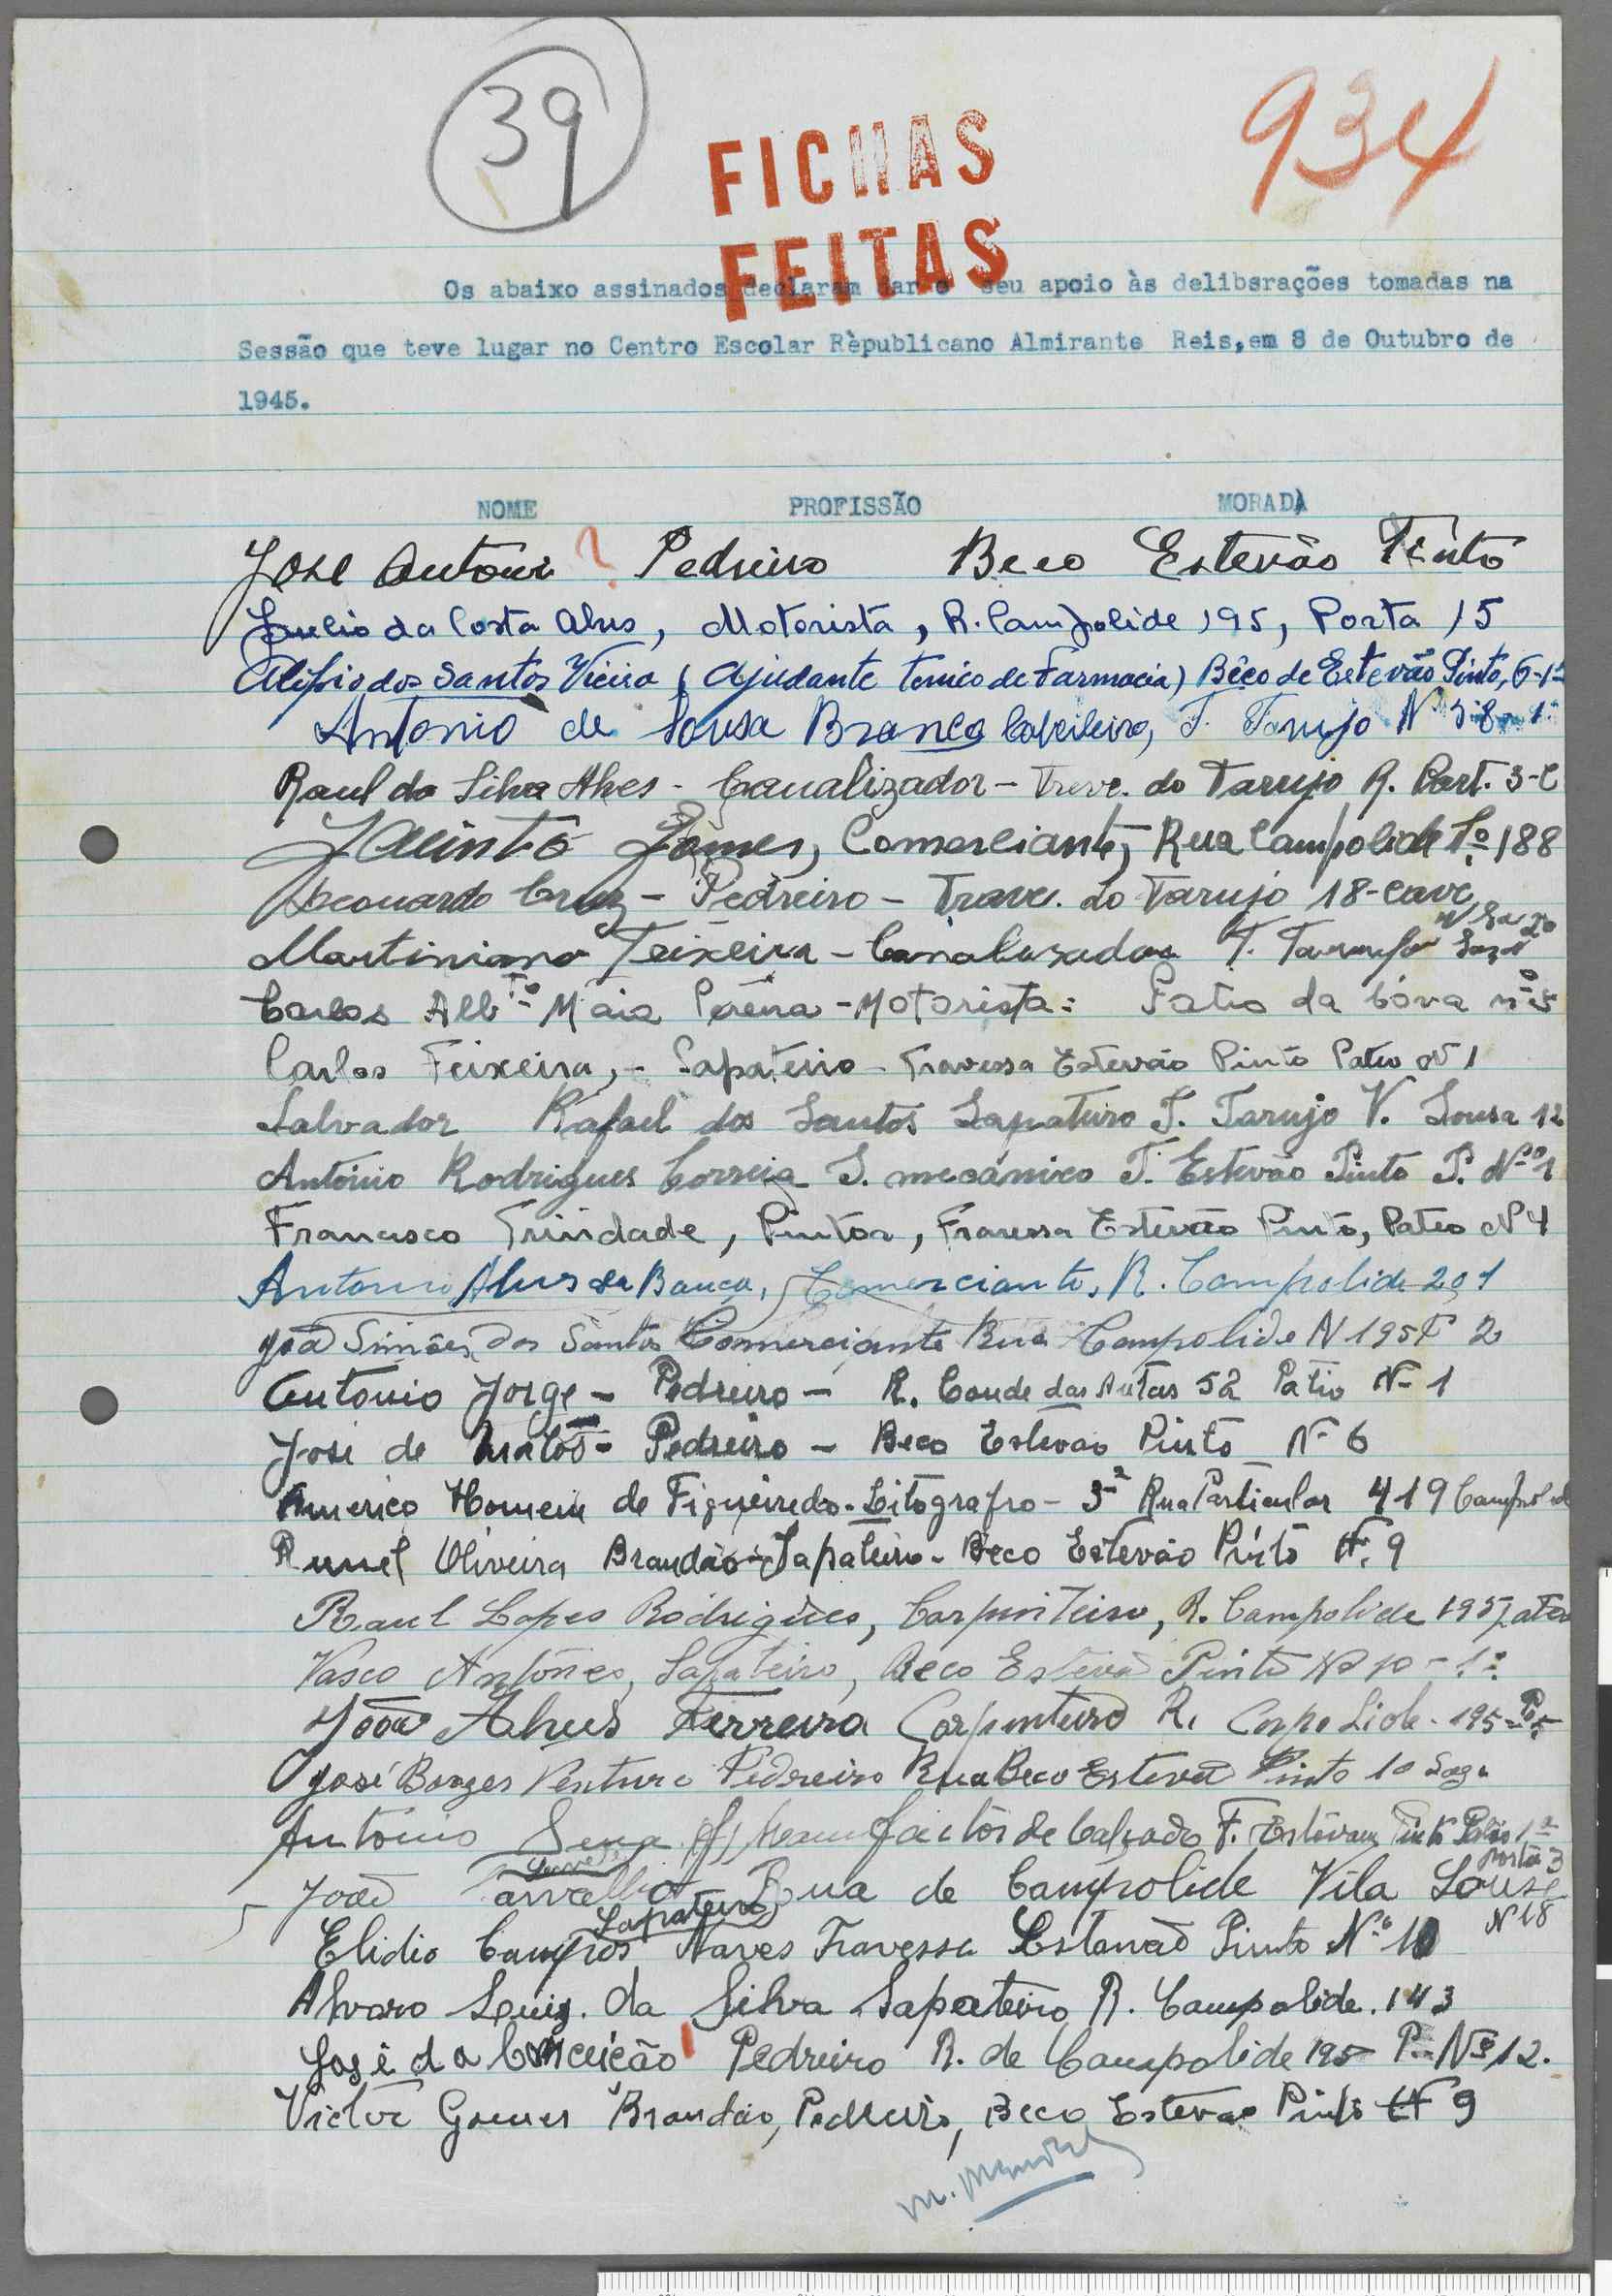 39
934
FICHAS
FEITAS
Os abaixo assinados declaram dar o seu apoio às delibsrações tomadas na
Sessão que teve lugar no Centro Escolar Rèpublicano Almirante Reis,em 8 de Outubro de
1945.
NOME PROFISSÃO MORADA
José Antonio ? Pedreiro Beco Estevão Pinto
da Costa Alves, Motorista, R. Campolide 195, Porta 15
Alipio dos Santos Vieira (Ajudante tecnico de Farmacia) Bêco de Estevão Pinto, 6-1º
Antonio de Sousa Branco T. Tarujo Nº
Raul da Silva Alves - Canalizador - Trave. do Tarujo R. Part. 3-C
Jacinto Gomes, Comerciante, Rua Campolide 188
Leonardo Cruz - Pedreiro - Trave. do Tarujo 18-cave
Martiniano Teixeira - Canalizador T. Tarujo
Carlos Albto Maia - Motorista: Patio da Cóva nº 5
Carlos Teixeira, - Sapateiro - Travessa Estevão Pinto Pateo Nº 1
Salvador Rafael dos Santos Sapateiro T. Tarujo V. Sousa 12
António Rodrigues Correia S. mecánico T. Estevão Pinto P. Nº 1
Francisco Trindade, Pintor, Travessa Estevão Pinto, Pateo Nº 4
Antonio Alves da Comerciante, R. Campolide 201
João Simões dos Santos Comerciante Rua Campolide N 195 P 2
Antonio Jorge - Pedreiro - R. Conde das Antas 52 Patio Nº 1
José de Matos - Pedreiro - Beco Estevão Pinto Nº 6
Americo Homem de Figueiredo - Litografo - 3ª Rua Particular 419 Campolide
Oliveira Brandão - Sapateiro - Beco Estevão Pinto Nº 9
Raul Lopes Rodrigues, Carpinteiro, R. Campolide 195
Vasco Antónes, Sapateiro, Beco Estevã Pinto Nº 10 - 1º
João Alves Ferreira Carpinteiro R. 195 - Pº 5
José Borges Ventura Pedreiro Rua Beco Estevã Pinto 10
Antonio Sena Manufactor de Calçado T. Pinto Patio 1º
porta 3
João Carvalho Rua de Campolide Vila Sousa
N 18
Sapateiro
Elidio Campos Naves Travessa Estevaõ Pinto Nº 10
Alvaro Luiz da Silva Sapateiro R. Campolide. 143
José da Conceição Pedreiro R. de Campolide 195 P. Nº 12.
Victor Gomes Brandão, Pedreiro, Beco Estevão Pinto Nº 9